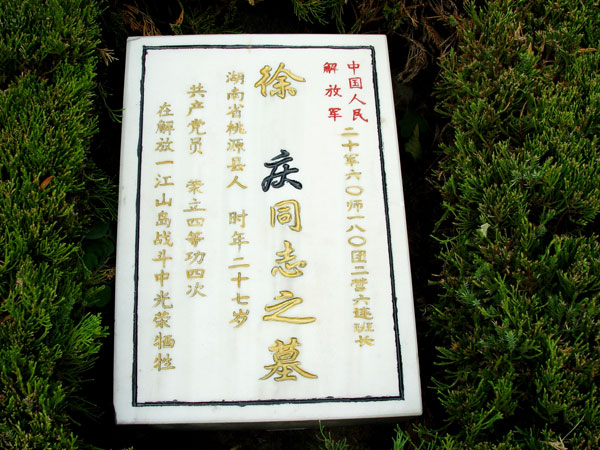 中国人民
解放军
二十军六〇师一八〇团二营六连班长
徐 庆同志之墓
湖南省桃源县人 时年二十七岁
共产党员 荣立四等功四次
在解放一江山岛战斗中光荣牺牲